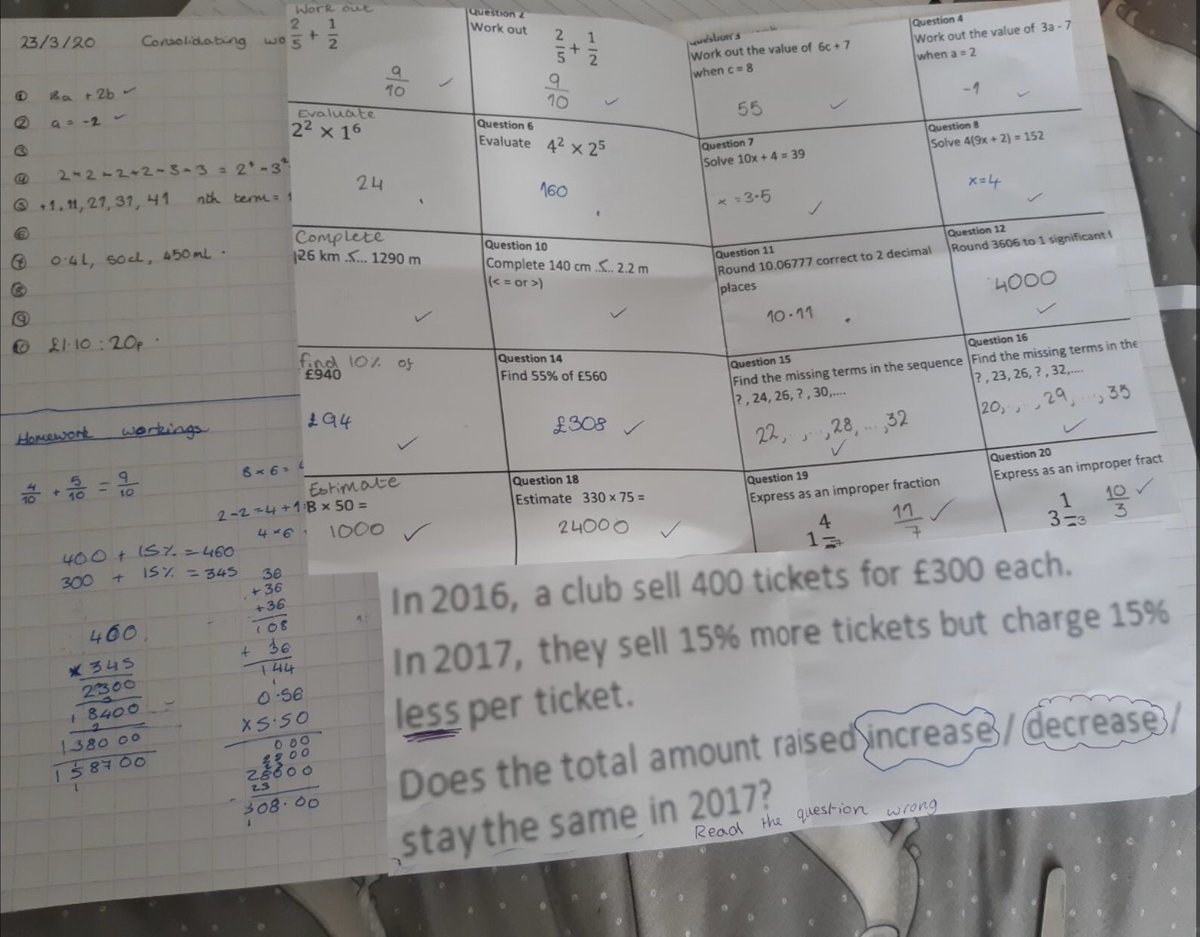 23/3/20 Consolidating wo
① 18a + 2b ✓
② a = -2 ✓
③
④ 2×2×2×2×3×3 = 2⁴×3²
⑤ +1, 11, 21, 31, 41 nth term =
⑥
⑦ 0.4L, 50cl, 450ml .
⑧
⑨
⑩ £1.10 : 20p .
Homework workings
4/10 + 5/10 = 9/10
8×6=
2×2=4+1
4×6
400 + 15% = 460
300 + 15% = 345
36
+36
+36
108
+ 36
144
460
× 345
2300
18400
138000
158700
0.56
×5.50
000
2800
28000
308.00
Work out
2/5 + 1/2
9/10 ✓
Question 2
Work out 2/5 + 1/2
9/10 ✓
Work out the value of 6c + 7
when c = 8
55 ✓
Question 4
Work out the value of 3a - 7
when a = 2
-1 ✓
Evaluate
2² × 1⁶
24 .
Question 6
Evaluate 4² × 2⁵
160 .
Question 7
Solve 10x + 4 = 39
x = 3.5 ✓
Question 8
Solve 4(9x + 2) = 152
x=4 ✓
Complete
126 km ..<... 1290 m
✓
Question 10
Complete 140 cm ..<.. 2.2 m
(< = or >)
✓
Question 11
Round 10.06777 correct to 2 decimal
places
10.11 .
Question 12
Round 3606 to 1 significant
4000
✓
find 10% of
£940
£94
✓
Question 14
Find 55% of £560
£308 ✓
Question 15
Find the missing terms in the sequence
? , 24, 26, ? , 30,....
22, .., .., 28, .., 32
✓
Question 16
Find the missing terms in the
? , 23, 26, ? , 32,....
20, .., .., 29, .., 35
✓
Estimate
18 × 50 =
1000 ✓
Question 18
Estimate 330 x 75 =
24000 ✓
Question 19
Express as an improper fraction
1 4/7
11/7 ✓
Question 20
Express as an improper fract
3 1/3
10/3 ✓
In 2016, a club sell 400 tickets for £300 each.
In 2017, they sell 15% more tickets but charge 15%
less per ticket.
Does the total amount raised increase / decrease /
stay the same in 2017?
Read the question wrong